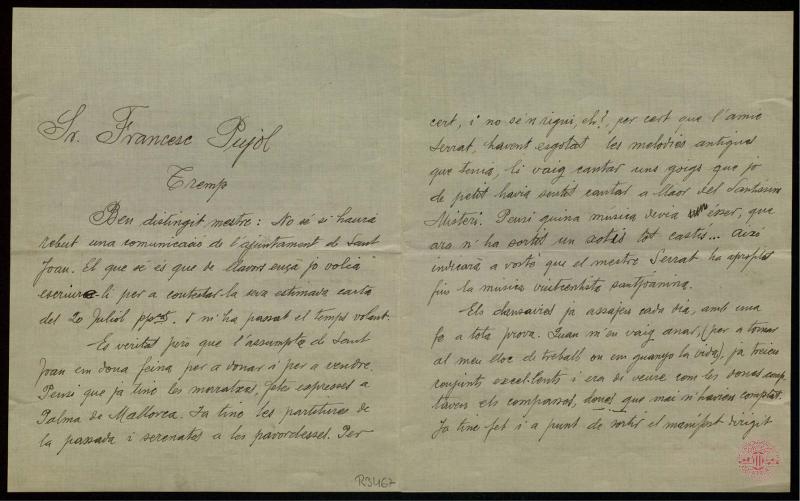 Sr. Francesc Pujol
Tremp
Ben distingit mestre: No sé si haurà
rebut una comunicació de l'ajuntament de Sant
Joan. El que sé és que de llavors ençà jo volia
escriure-li per a contestar-la seva estimada carta
del 20 Juliol pp.st. I m'ha passat el temps volant.
Es veritat però que l'assumpte de Sant
Joan em dona feina per a donar i per a vendre.
Pensi que ja tinc les morratxes, fetes expresses a
Palma de Mallorca. Ja tinc les partitures de
la passada i serenates a les pavordesses. Per
cert, i no se'n rigui, eh?, per cert que l'amic
Serrat, havent esgotat les melodies antigues
que tenia, li vaig cantar uns goigs que jo
de petit havia sentit cantar a llaor del Santissim
Misteri. Pensi quina musica devia ésser, que
ara n'ha sortit un xotis tot castís... Això
indicarà a vostè que el mestre Serrat ha aprofitat
fins la musica vuitcentista santjoanina.
Els dansaires ja assajen cada dia, amb una
fe a tota prova. Quan m'en vaig anar, (per a tornar
al meu lloc de treball on em guanyo la vida), ja treien
conjunts excel.lents i era de veure com les dones comp-
taven els compassos, dones que mai n'havien comptat.
Ja tinc fet i a punt de sortir el manifest dirigit
R3467